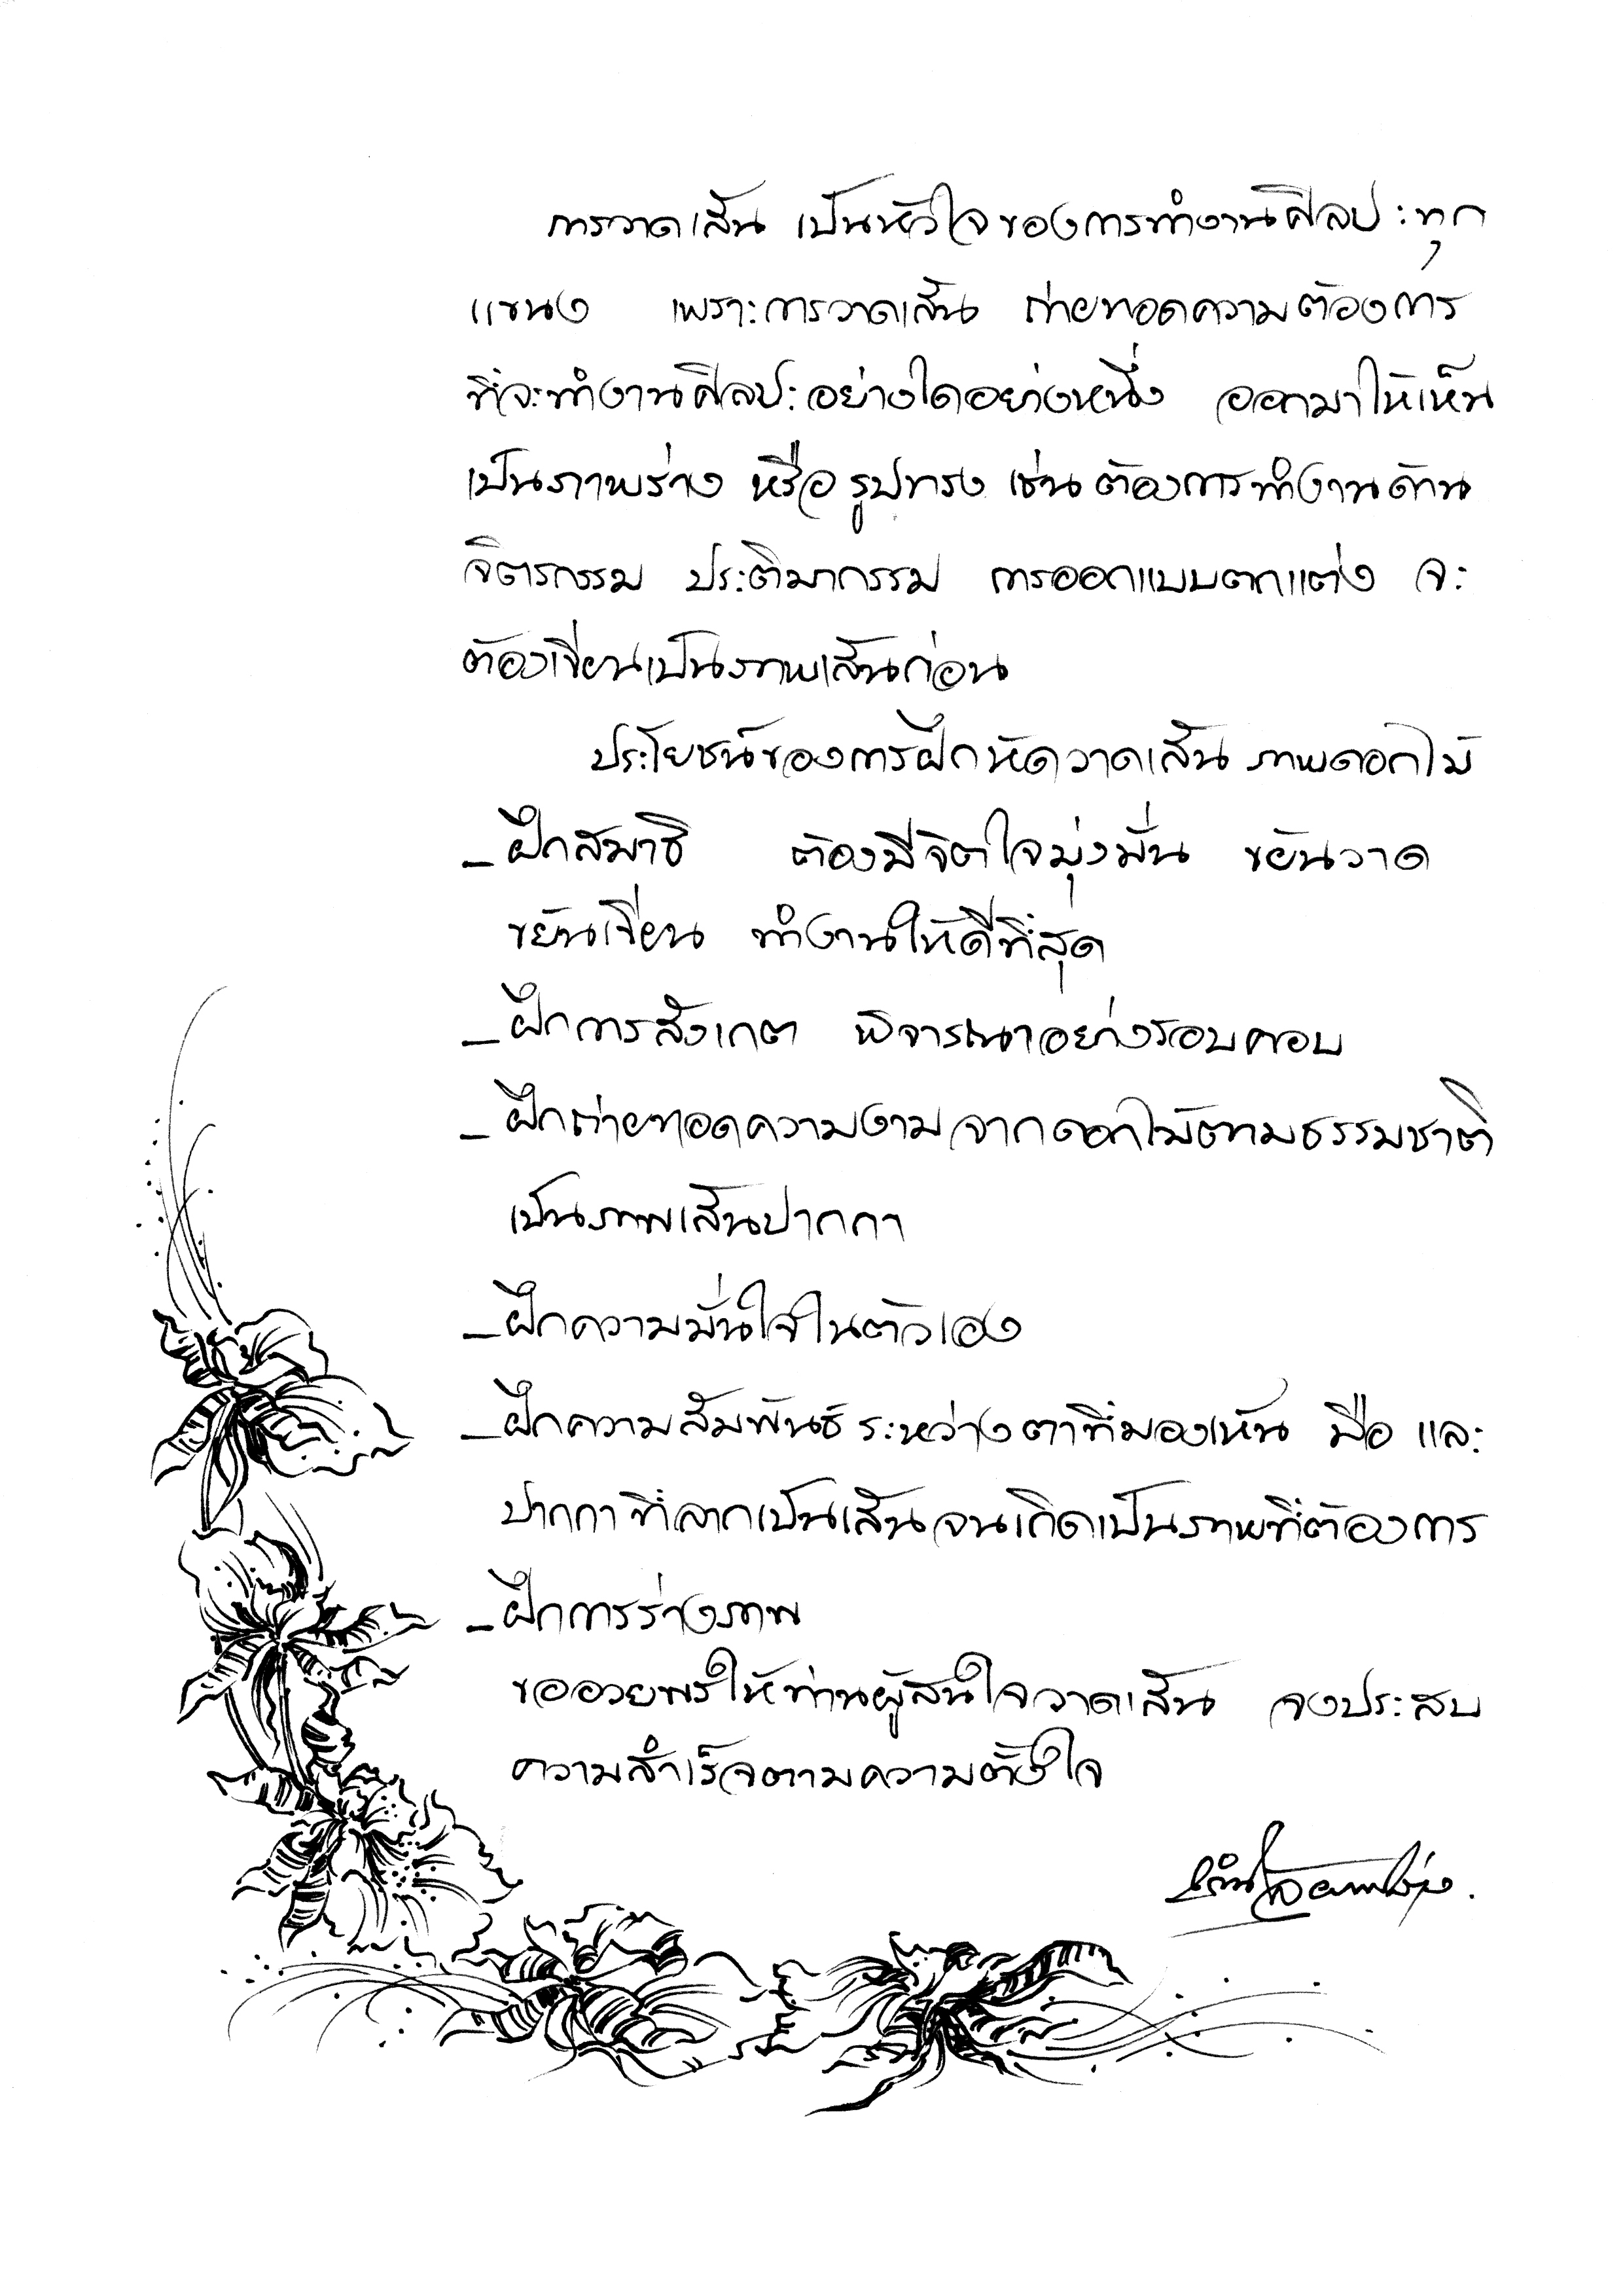 การวาดเส้น เป็นหัวใจของการทำงานศิลปะทุก
แขนง เพราะการวาดเส้น ถ่ายทอดความต้องการ
ที่จะทำงานศิลปะอย่างใดอย่างหนึ่ง ออกมาให้เห็น
เป็นภาพร่าง หรือ รูปทรง เช่น ต้องการทำงานด้าน
จิตรกรรม ประติมากรรม การออกแบบตกแต่ง จะ
ต้องเขียนเป็นภาพเส้นก่อน
ประโยชน์ของการฝึกหัดวาดเส้น ภาพดอกไม้
- ฝึกสมาธิ ต้องมีจิตใจมุ่งมั่น ขยันวาด
ขยันเขียน ทำงานให้ดีที่สุด
- ฝึกการสังเกต พิจารณาอย่างรอบคอบ
- ฝึกถ่ายทอดความงามจากดอกไม้ตามธรรมชาติ
เป็นภาพเส้นปากกา
- ฝึกความมั่นใจในตัวเอง
- ฝึกความสัมพันธ์ระหว่างตาที่มองเห็น มือ และ
ปากกา ที่ลากเป็นเส้นจนเกิดเป็นภาพที่ต้องการ
- ฝึกการร่างภาพ
ขออวยพรให้ท่านผู้สนใจวาดเส้น จงประสบ
ความสำเร็จตามความตั้งใจ